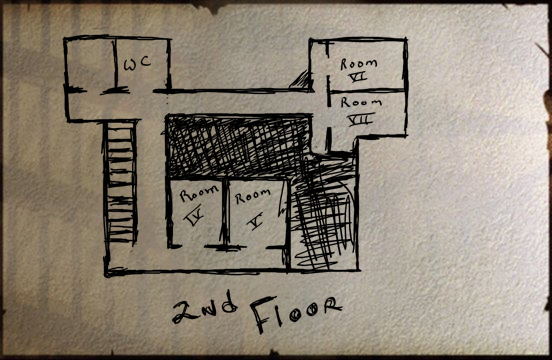 WC
Room
VI
Room
VII
Room
IV
Room
V
2nd Floor